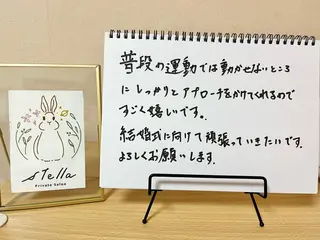 stella
Private Salon
普段の運動では動かせないところ
にしっかりとアプローチをかけてくれるので
すごく嬉しいです。
結婚式に向けて頑張っていきたいです。
よろしくお願いします。